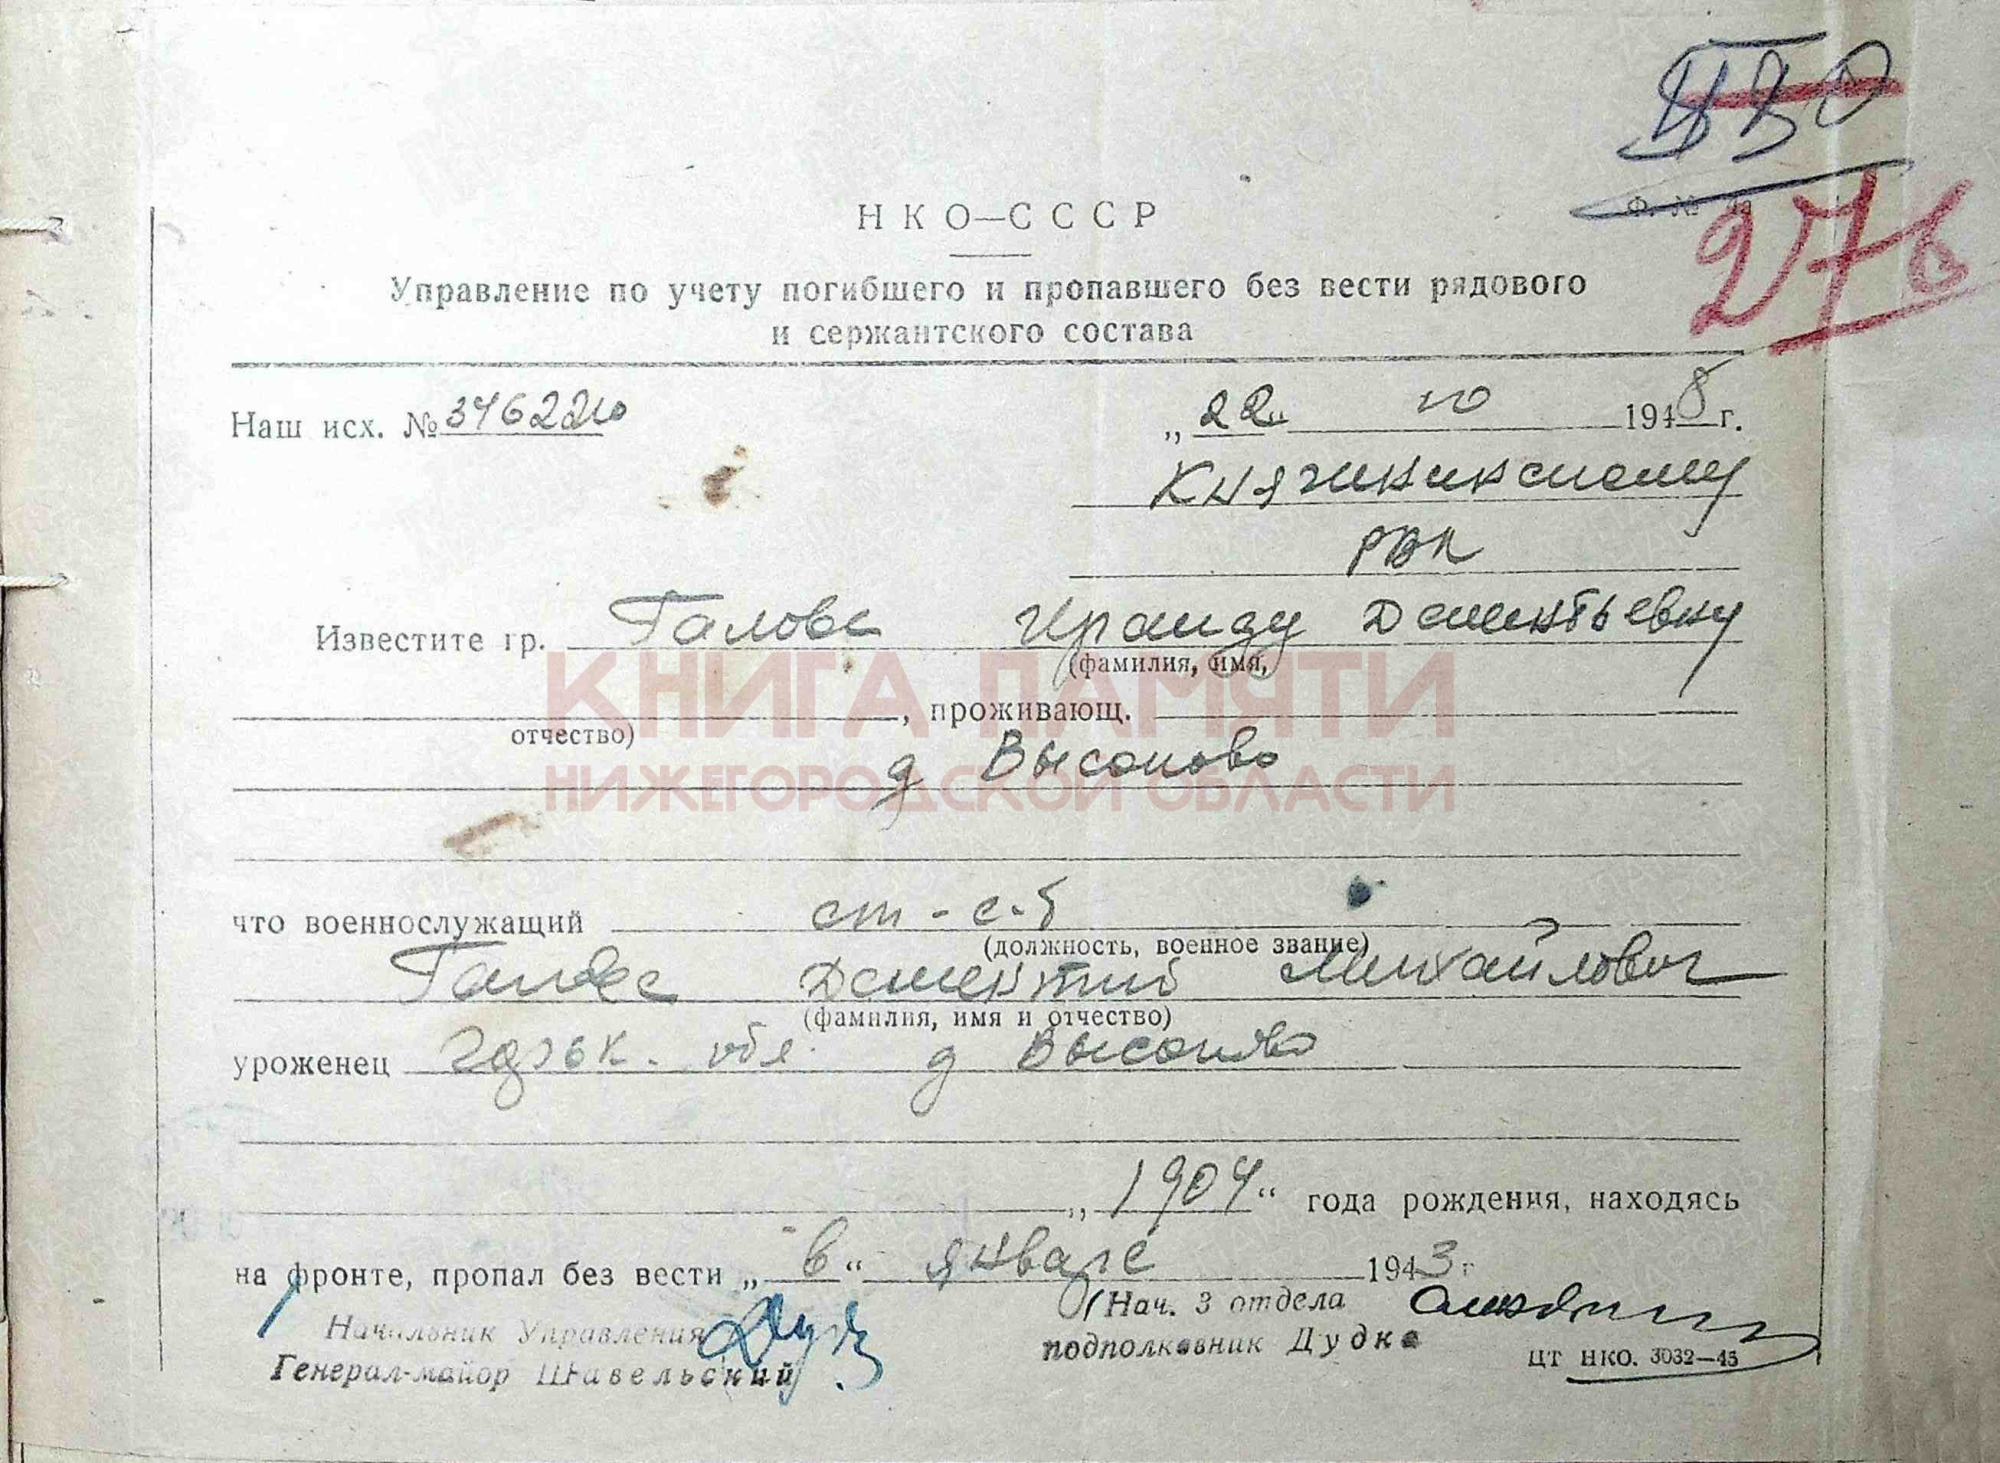 276
Н К О—С С С Р
Управление по учету погибшего и пропавшего без вести рядового
и сержантского состава
Наш исх. № „ 22 “ 10 1948 г.
Княгининскому
РВК
Известите гр. Ираиду Дементьевну
(фамилия, имя,
, проживающ.
отчество)
д Высоково
КНИГА ПАМЯТИ
НИЖЕГОРОДСКОЙ ОБЛАСТИ
что военнослужащий ст-с-т
(должность, военное звание)
Дементий Михайлович
(фамилия, имя и отчество)
уроженец Горьк. обл. д Высоково
„ 1904 “ года рождения, находясь
на фронте, пропал без вести „ в “ январе 1943 г
Начальник Управления
Генерал-майор Шавельский
Нач. 3 отдела
подполковник Дудка
ЦТ НКО. 3032—45